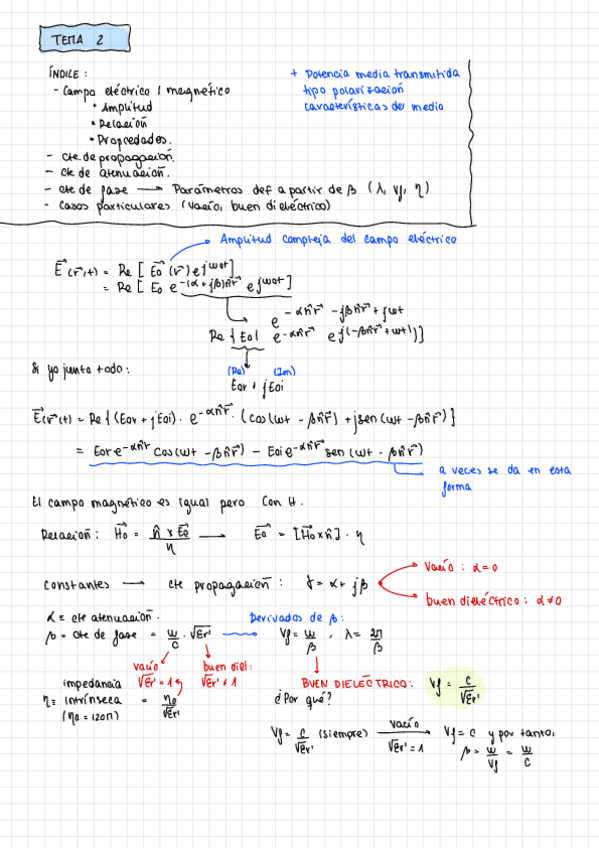 TEMA 2
ÍNDICE:
- Campo eléctrico / magnético
• Amplitud
• Relación
• Propiedades.
- Cte de propagación.
- Cte de atenuación.
- cte de fase ⟶ Parámetros def a partir de β (λ, vf, η)
- Casos particulares (vacío, buen dieléctrico)
+ Potencia media transmitida
tipo polarización
características del medio
Amplitud compleja del campo eléctrico
E⃗(r⃗,t) = Re [ E⃗o (r⃗) e^jwot ]
= Re [ Eo e^-(α+jβ)n̂r⃗ e^jwot ]
e^-αn̂r⃗ -jβn̂r⃗ +jwt
Re { Eo| e^-αn̂r⃗ e^j(-βn̂r⃗+wt)}]
Si yo junto todo:
(Re) (Im)
Eor + jEoi
E⃗(r⃗,t) = Re { (Eor + jEoi) · e^-αn̂r⃗ · (cos(wt - βn̂r⃗) + jsen(wt - βn̂r⃗)}
= Eor e^-αn̂r⃗ cos(wt - βn̂r⃗) - Eoi e^-αn̂r⃗ sen(wt - βn̂r⃗)
a veces se da en esta
forma
El campo magnético es igual pero con H.
Relación: H⃗o = n̂ x E⃗o / η ⟶ E⃗o = [H⃗o x n̂] · η
constantes ⟶ cte propagación: γ = α + jβ
vacío: α = 0
buen dieléctrico: α ≠ 0
α = cte atenuación.
Derivados de β:
β = cte de fase = w/c · √εr' ⟶ vf = w/β , λ = 2π/β
vacío √εr' = 1
buen diel: √εr' ≠ 1
BUEN DIELÉCTRICO: vf = c/√εr'
¿Por qué?
η = impedancia intrínseca = ηo/√εr'
(ηo = 120π)
vf = c/√εr' (siempre) vacío ⟶ √εr' = 1 vf = c y por tanto,
β = w/vf = w/c